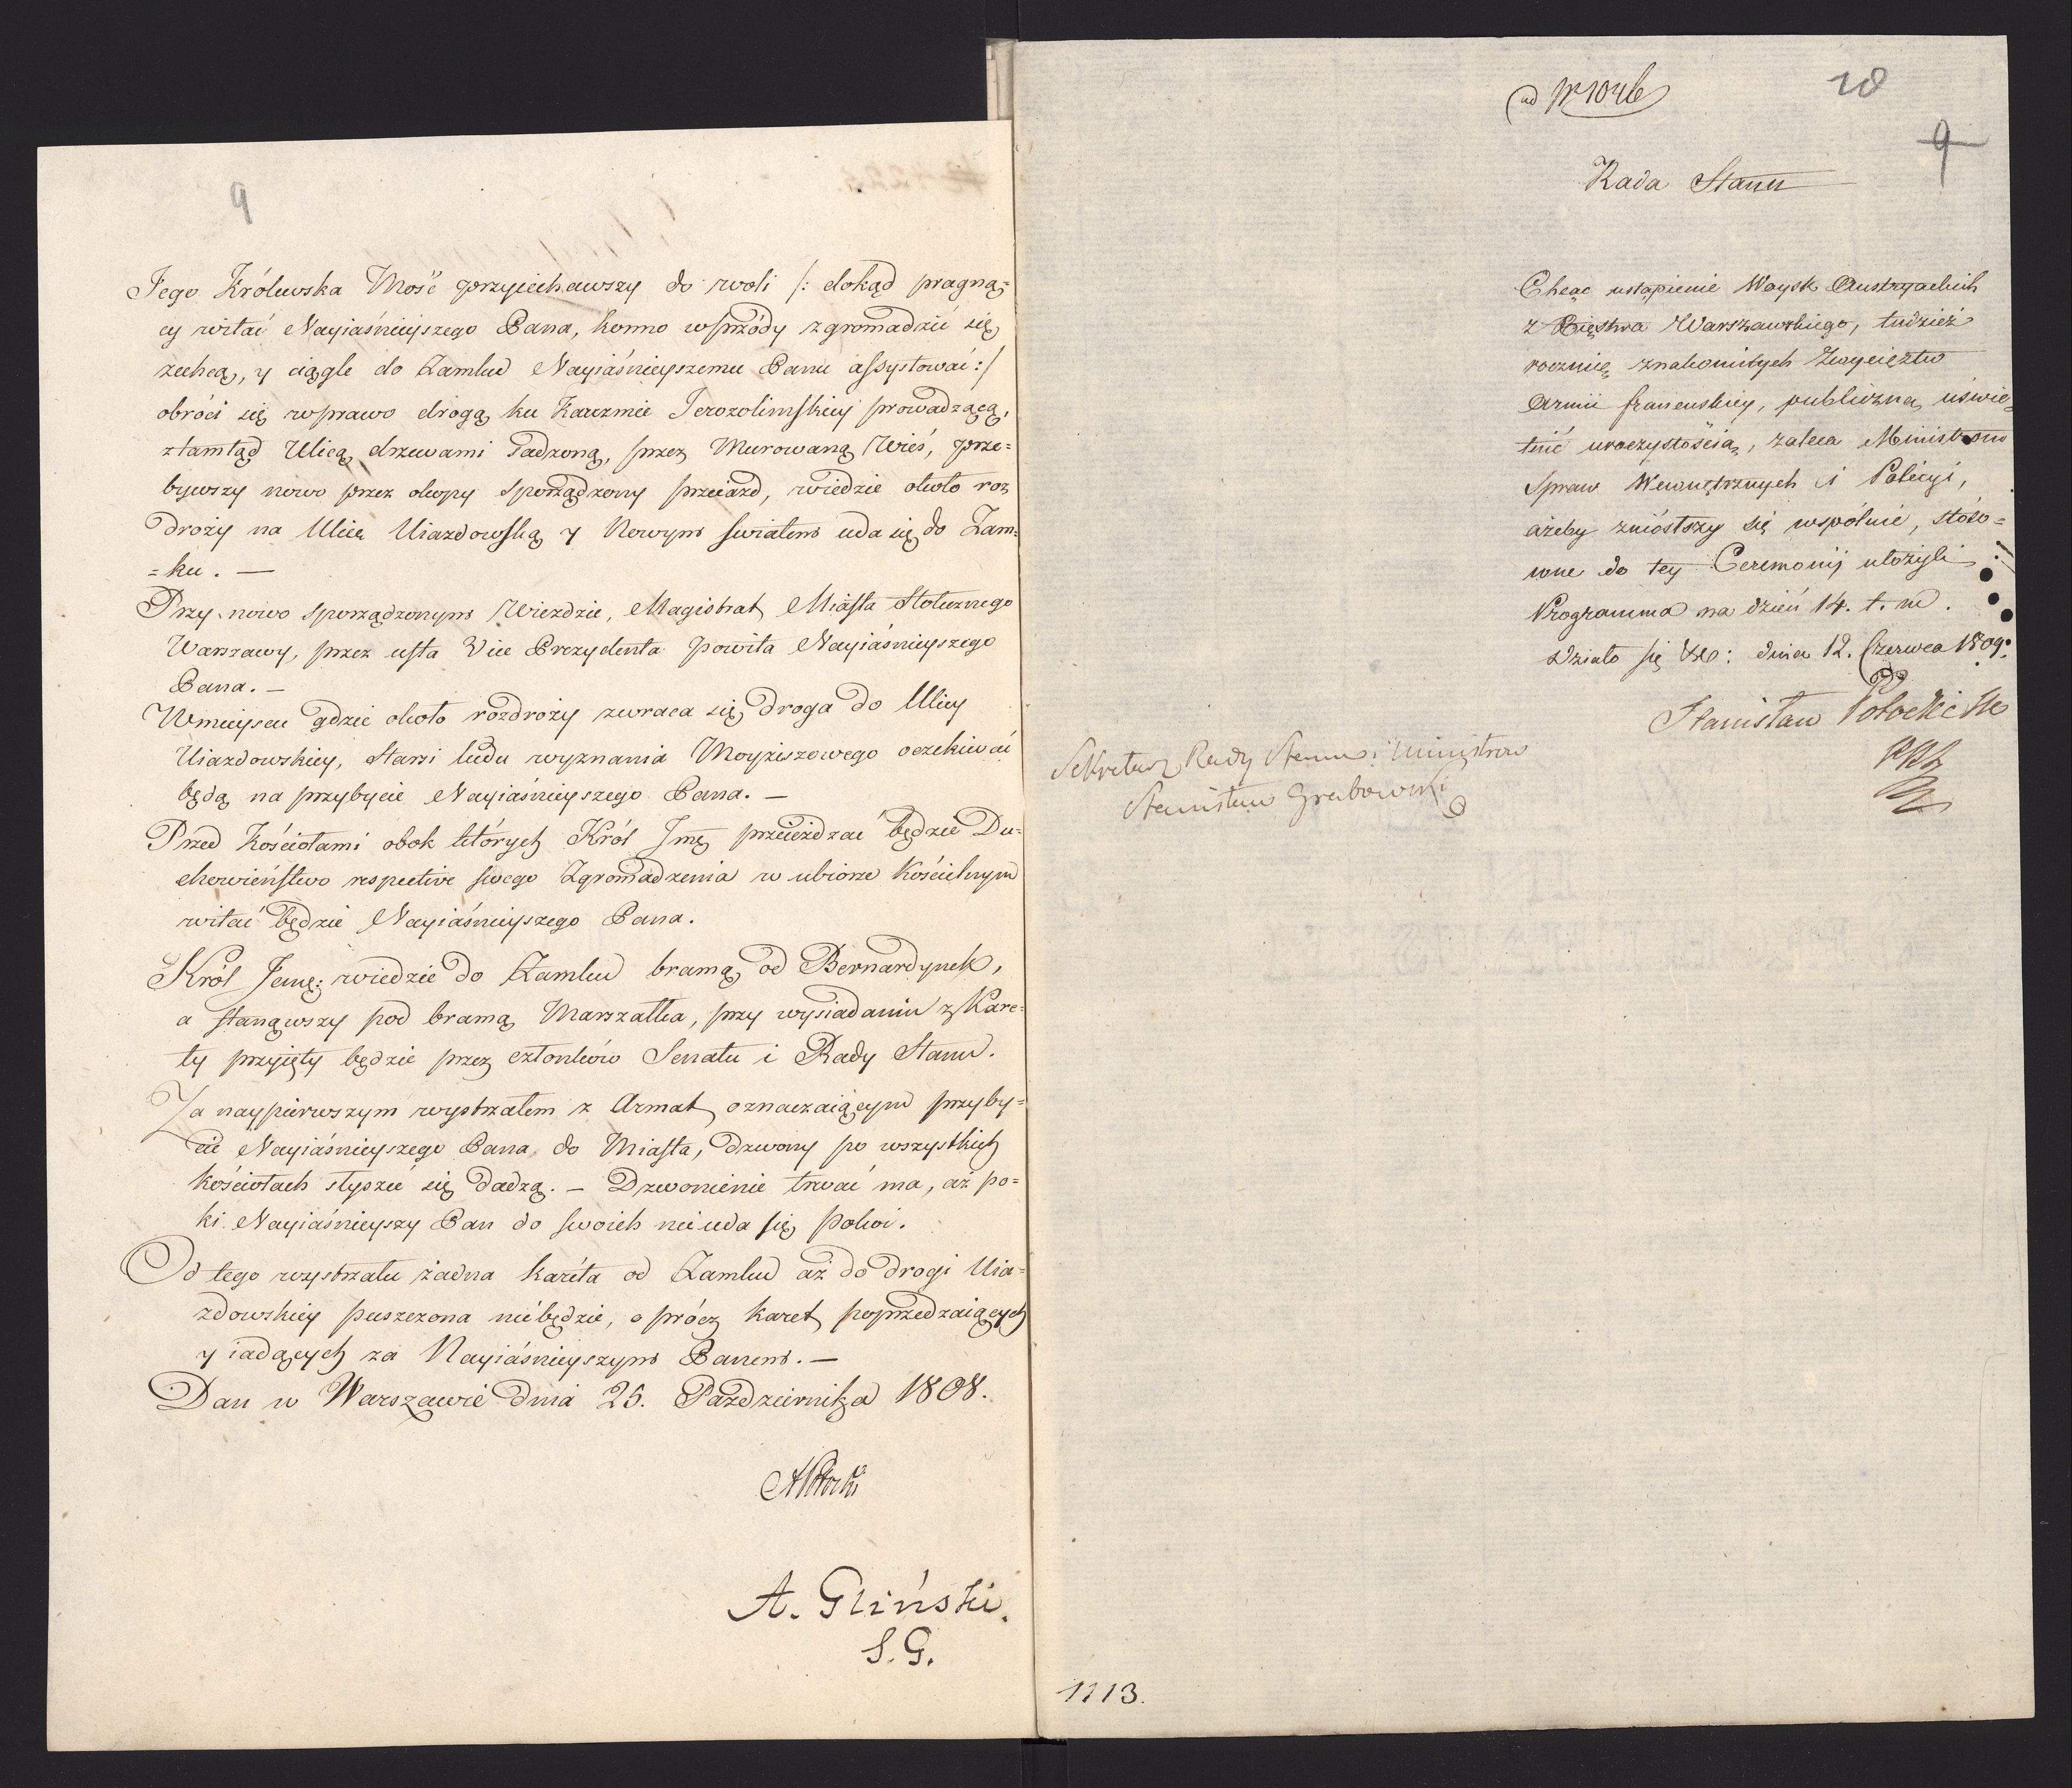 9
Jego Królewska Mość przyiechawszy do woli /: dokąd pragną=
cy witać Nayiaśnieyszego Pana, konno wprzódy zgromadzić się
zechcą, y ciągle do Zamku Nayiaśnieyszemu Panu assystować :/
obróci się wprawo drogą ku Karczmie Jerozolimskiey prowadzącą,
ztamtąd Ulicą drzewami sadzoną, przez Murowaną Wieś, prze=
bywszy nowo przez okopy sporządzony przeiazd, wiedzie około roz
droży na Ulicę Uiazdowską y Nowym swiatem uda się do Zam=
=ku. —
Przy nowo sporządzonym Wieździe, Magistrat Miasta Stołecznego
Warszawy, przez usta Vice Prezydenta powita Nayiaśnieyszego
Pana. —
W mieyscu gdzie około rozdroży zwraca się droga do Ulicy
Uiazdowskiey, starsi ludu wyznania Moyżeszowego oczekiwać
będą na przybycie Nayiaśnieyszego Pana. —
Przed Kościołami obok których Król Jmę przeieżdzać będzie Du=
chowieństwo respective swego Zgromadzenia w ubiorze Kościelnym
witać będzie Nayiaśnieyszego Pana.
Król Jemę: wiedzie do Zamku bramą od Bernardynek,
a stanąwszy pod bramą Marszałka, przy wysiadaniu z Kare=
ty przyięty będzie przez członków Senatu i Rady Stanu.
Za naypierwszym wystrzałem z Armat oznaczaiącym przyby=
cie Nayiaśnieyszego Pana do Miasta, dzwony po wszystkich
kościołach słyszeć się dadzą. — Dzwonienie trwać ma, aż po=
ki Nayiaśnieyszy Pan do swoich nie uda się pokoi.
Od tego wystrzału żadna karéta od Zamku aż do drogi Uia=
zdowskiey puszczona niebędzie, oprócz karet poprzedzaiących
y iadących za Nayiaśnieyszym Panem. —
Dan w Warszawie dnia 25. Października 1808.
A Potocki
A. Gliński.
S. G.
ad Nr 1046
10
9
Rada Stanu
Chcąc ustąpienie Woysk Austryackich
z Xięstwa Warszawskiego, tudzież
rocznicę znakomitych Zwycięztw
Armii francuskiey, publiczną uświe=
tnić uroczystością, zaleca Ministrom
Spraw Wewnętrznych i Policyi,
ażeby zniosłszy się wspólnie, stoso=
wne do tey Ceremonij ułożyli
Programma na dzień 14. t. m.
Działo się dnia 12. Czerwca 1809.
Stanisław Potocki
Sekretarz Rady Stanu i Ministrów
Stanisław Grabowski
1113.